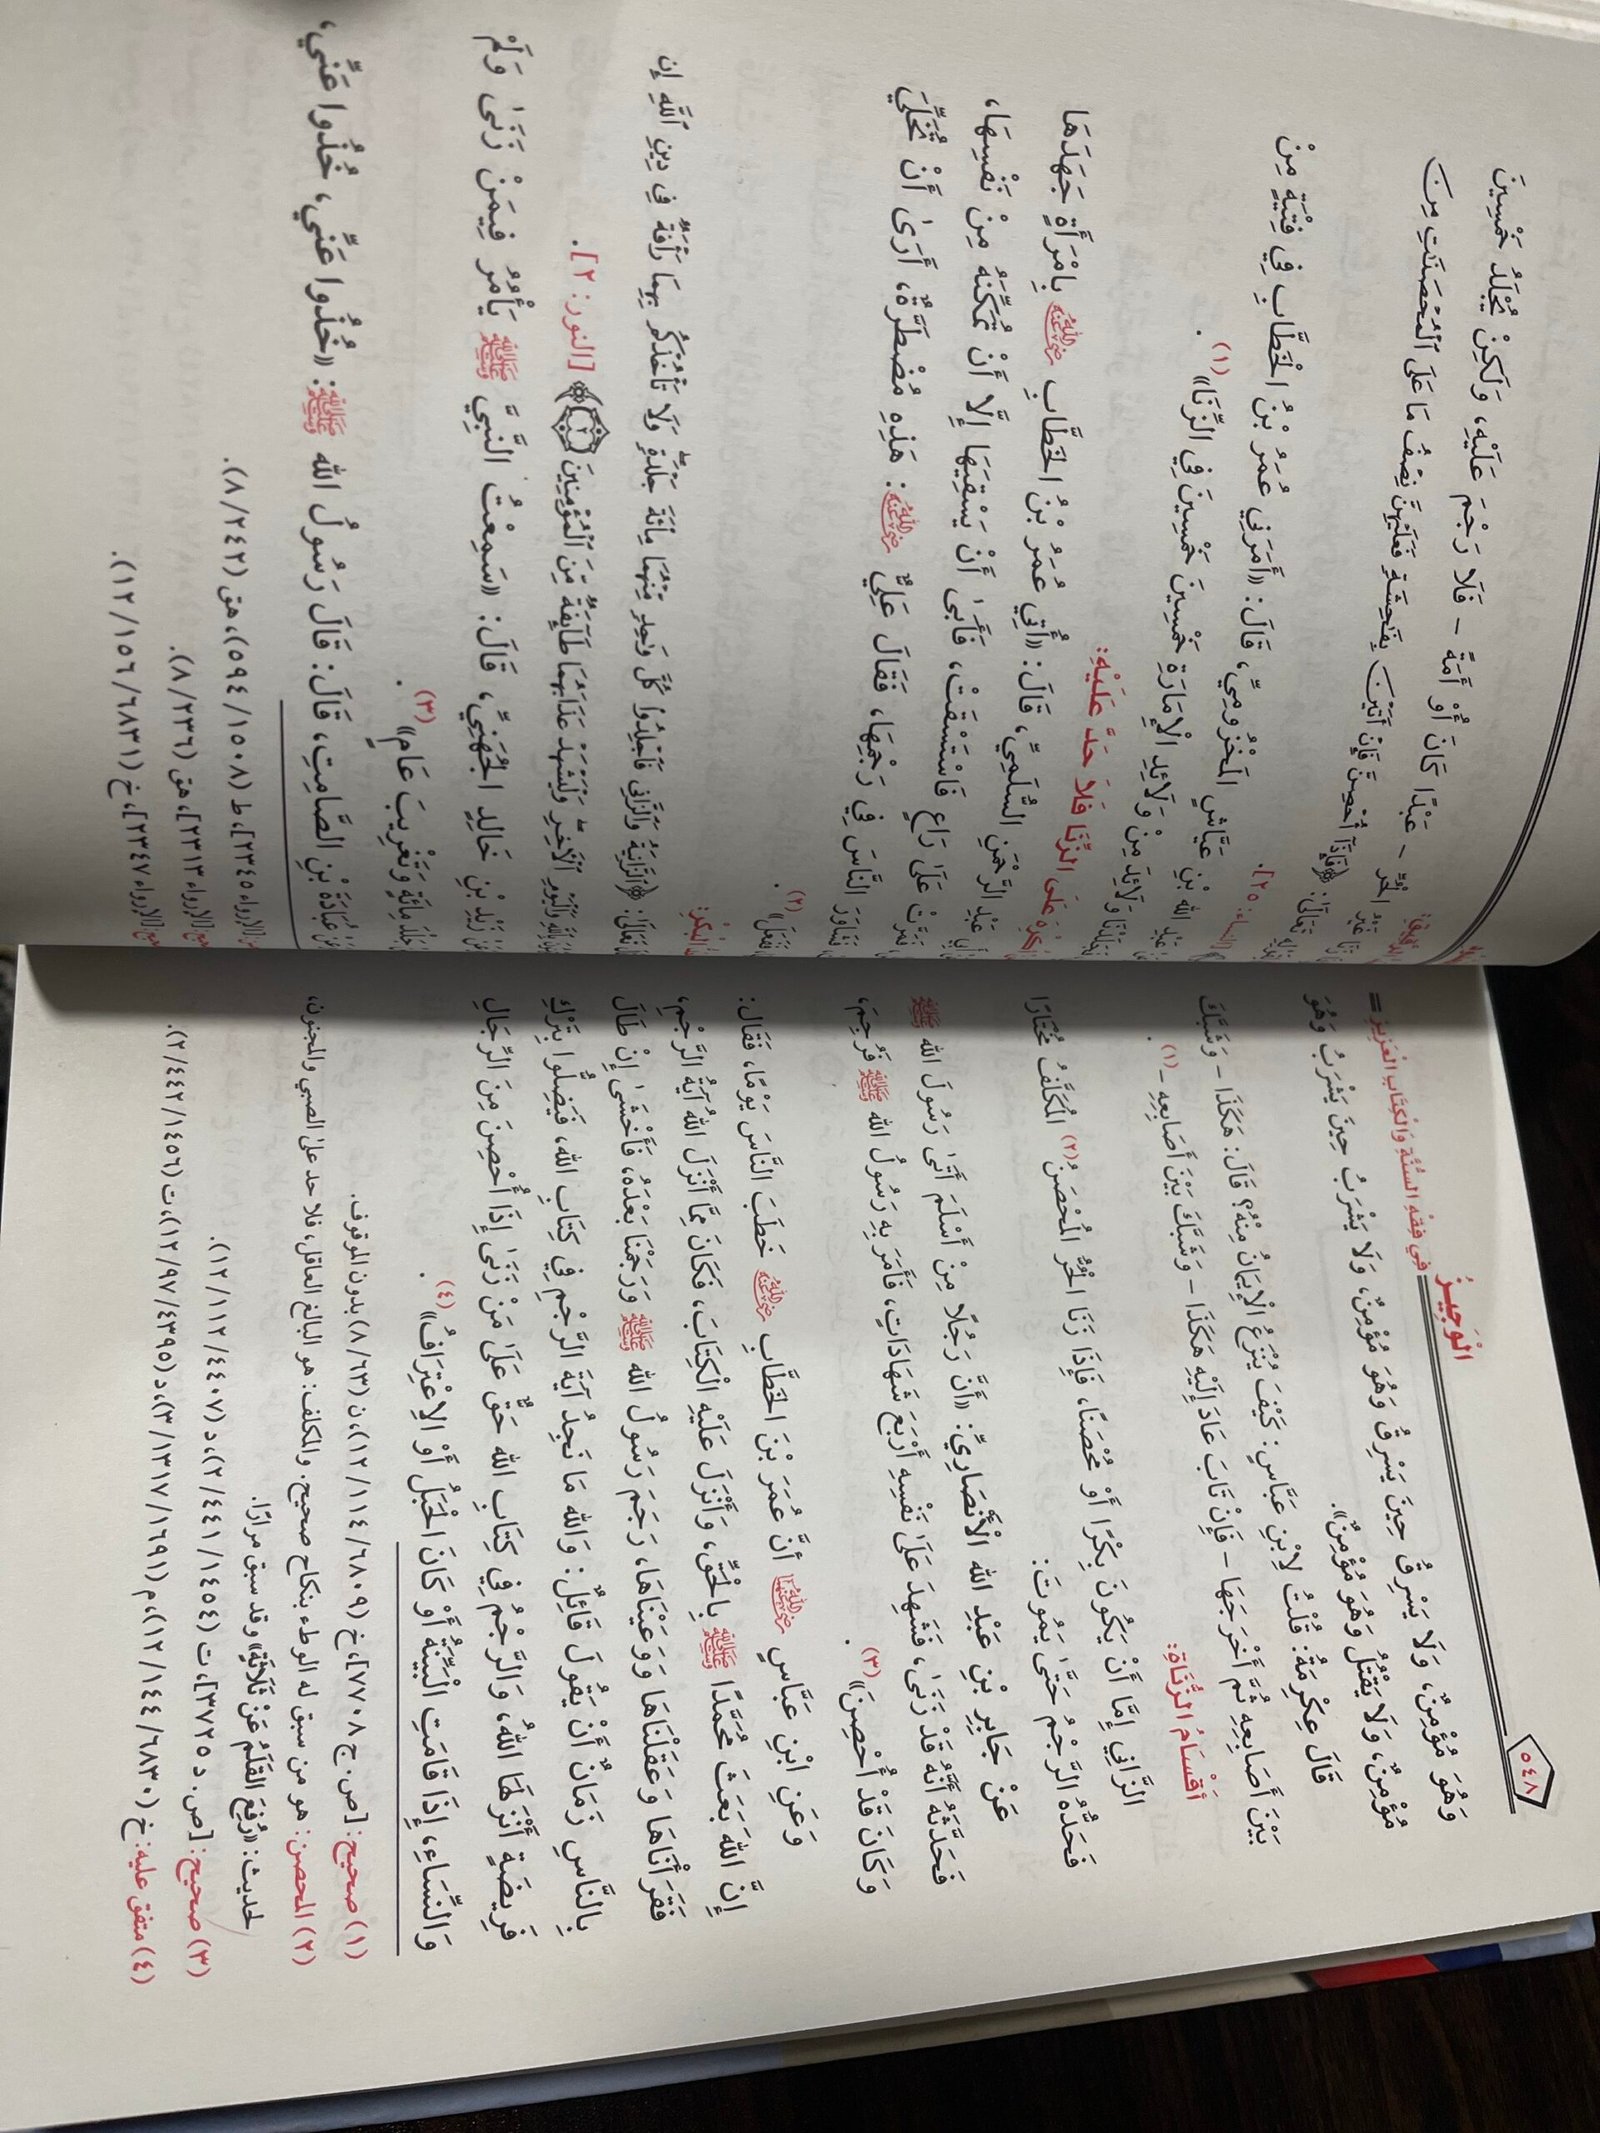 ٥٤٨
الْوَجِيزُ
فِي فِقْهِ السُّنَّةِ وَالْكِتَابِ الْعَزِيزِ
وَهُوَ مُؤْمِنٌ، وَلَا يَسْرِقُ حِينَ يَسْرِقُ وَهُوَ مُؤْمِنٌ، وَلَا يَشْرَبُ حِينَ يَشْرَبُ وَهُوَ
مُؤْمِنٌ، وَلَا يَقْتُلُ وَهُوَ مُؤْمِنٌ».
قَالَ عِكْرِمَةُ: قُلْتُ لِابْنِ عَبَّاسٍ: كَيْفَ يُنْزَعُ الْإِيمَانُ مِنْهُ؟ قَالَ: هَكَذَا - وَشَبَّكَ
بَيْنَ أَصَابِعِهِ ثُمَّ أَخْرَجَهَا - فَإِنْ تَابَ عَادَ إِلَيْهِ هَكَذَا - وَشَبَّكَ بَيْنَ أَصَابِعِهِ -(١).
أَقْسَامُ الزُّنَاةِ:
الزَّانِي إِمَّا أَنْ يَكُونَ بِكْرًا أَوْ مُحْصَنًا، فَإِذَا زَنَا الْحُرُّ الْمُحْصَنُ(٢) الْمُكَلَّفُ مُخْتَارًا
فَحَدُّهُ الرَّجْمُ حَتَّىٰ يَمُوتَ:
عَنْ جَابِرِ بْنِ عَبْدِ الله الْأَنْصَارِيِّ: «أَنَّ رَجُلًا مِنْ أَسْلَمَ أَتَىٰ رَسُولَ الله ﷺ
فَحَدَّثَهُ أَنَّهُ قَدْ زَنَىٰ، فَشَهِدَ عَلَىٰ نَفْسِهِ أَرْبَعَ شَهَادَاتٍ، فَأَمَرَ بِهِ رَسُولُ الله ﷺ فَرُجِمَ،
وَكَانَ قَدْ أُحْصِنَ»(٣).
وَعَنِ ابْنِ عَبَّاسٍ رضي الله عنهما أَنَّ عُمَرَ بْنَ الْخَطَّابِ رضي الله عنه خَطَبَ النَّاسَ يَوْمًا، فَقَالَ:
إِنَّ اللهَ بَعَثَ مُحَمَّدًا ﷺ بِالْحَقِّ، وَأَنْزَلَ عَلَيْهِ الْكِتَابَ، فَكَانَ مِمَّا أَنْزَلَ اللهُ آيَةُ الرَّجْمِ،
فَقَرَأْنَاهَا وَعَقَلْنَاهَا وَوَعَيْنَاهَا، رَجَمَ رَسُولُ الله ﷺ وَرَجَمْنَا بَعْدَهُ، فَأَخْشَىٰ إِنْ طَالَ
بِالنَّاسِ زَمَانٌ أَنْ يَقُولَ قَائِلٌ: وَالله مَا نَجِدُ آيَةَ الرَّجْمِ فِي كِتَابِ الله، فَيَضِلُّوا بِتَرْكِ
فَرِيضَةٍ أَنْزَلَهَا اللهُ، وَالرَّجْمُ فِي كِتَابِ الله حَقٌّ عَلَىٰ مَنْ زَنَىٰ إِذَا أُحْصِنَ مِنَ الرِّجَالِ
وَالنِّسَاءِ، إِذَا قَامَتِ الْبَيِّنَةُ أَوْ كَانَ الْحَبَلُ أَوْ الِاعْتِرَافُ»(٤).
(١) صحيح: [ص. ج ٧٧٠٨]، خ (٦٨٠٩/ ١١٤/ ١٢)، ن (٦٣/ ٨) بدون الموقوف.
(٢) المحصن: هو من سبق له الوطء بنكاح صحيح. والمكلف: هو البالغ العاقل، فلا حد على الصبي والمجنون،
لحديث: «رُفِعَ القَلَمُ عَنْ ثَلَاثَةٍ» وقد سبق مرارًا.
(٣) صحيح: [ص. د ٣٧٢٥]، ت (١٤٥٤/ ٤٤١/ ٢)، د (٤٤٠٧/ ١١٢/ ١٢).
(٤) متفق عليه: خ (٦٨٣٠/ ١٤٤/ ١٢)، م (١٦٩١/ ١٣١٧/ ٣)، د (٤٣٩٥/ ٩٧/ ١٢)، ت (١٤٥٦/ ٤٤٢/ ٢).
عَبْدًا كَانَ أَوْ أَمَةً - فَلَا رَجْمَ عَلَيْهِ، وَلَكِنْ يُجْلَدُ خَمْسِينَ
﴿فَإِذَا أُحْصِنَّ فَإِنْ أَتَيْنَ بِفَاحِشَةٍ فَعَلَيْهِنَّ نِصْفُ مَا عَلَى الْمُحْصَنَاتِ مِنَ
[النساء: ٢٥].
الله بْنِ عَيَّاشٍ الْمَخْزُومِيِّ، قَالَ: «أَمَرَنِي عُمَرُ بْنُ الْخَطَّابِ فِي فِتْيَةٍ مِنْ
وَلَائِدَ مِنْ وَلَائِدِ الْإِمَارَةِ خَمْسِينَ خَمْسِينَ فِي الزِّنَا»(١).
عَلَى الزِّنَا فَلَا حَدَّ عَلَيْهِ:
عَبْدِ الرَّحْمَنِ السُّلَمِيِّ، قَالَ: «أُتِيَ عُمَرُ بْنُ الْخَطَّابِ رضي الله عنه بِامْرَأَةٍ جَهَدَهَا
عَلَىٰ رَاعٍ فَاسْتَسْقَتْ، فَأَبَىٰ أَنْ يَسْقِيَهَا إِلَّا أَنْ تُمَكِّنَهُ مِنْ نَفْسِهَا،
النَّاسَ فِي رَجْمِهَا، فَقَالَ عَلِيٌّ رضي الله عنه: هَذِهِ مُضْطَرَّةٌ، أَرَىٰ أَنْ تُخَلِّيَ
(٢).
﴿الزَّانِيَةُ وَالزَّانِي فَاجْلِدُوا كُلَّ وَاحِدٍ مِنْهُمَا مِائَةَ جَلْدَةٍ وَلَا تَأْخُذْكُمْ بِهِمَا رَأْفَةٌ فِي دِينِ اللَّهِ إِنْ
وَالْيَوْمِ الْآخِرِ وَلْيَشْهَدْ عَذَابَهُمَا طَائِفَةٌ مِنَ الْمُؤْمِنِينَ ٢﴾ [النور: ٢].
زَيْدِ بْنِ خَالِدٍ الْجُهَنِيِّ، قَالَ: «سَمِعْتُ النَّبِيَّ ﷺ يَأْمُرُ فِيمَنْ زَنَىٰ وَلَمْ
مِائَةٍ وَتَغْرِيبَ عَامٍ»(٣).
عُبَادَةَ بْنِ الصَّامِتِ، قَالَ: قَالَ رَسُولُ الله ﷺ: «خُذُوا عَنِّي، خُذُوا عَنِّي،
[الإرواء ٢٣٤٥]، ط (١٥٠٨/ ٥٩٤)، هق (٢٤٢/ ٨).
[الإرواء ٢٣١٣]، هق (٢٣٦/ ٨).
[الإرواء ٢٣٤٧]، خ (٦٨٣١/ ١٥٦/ ١٢).